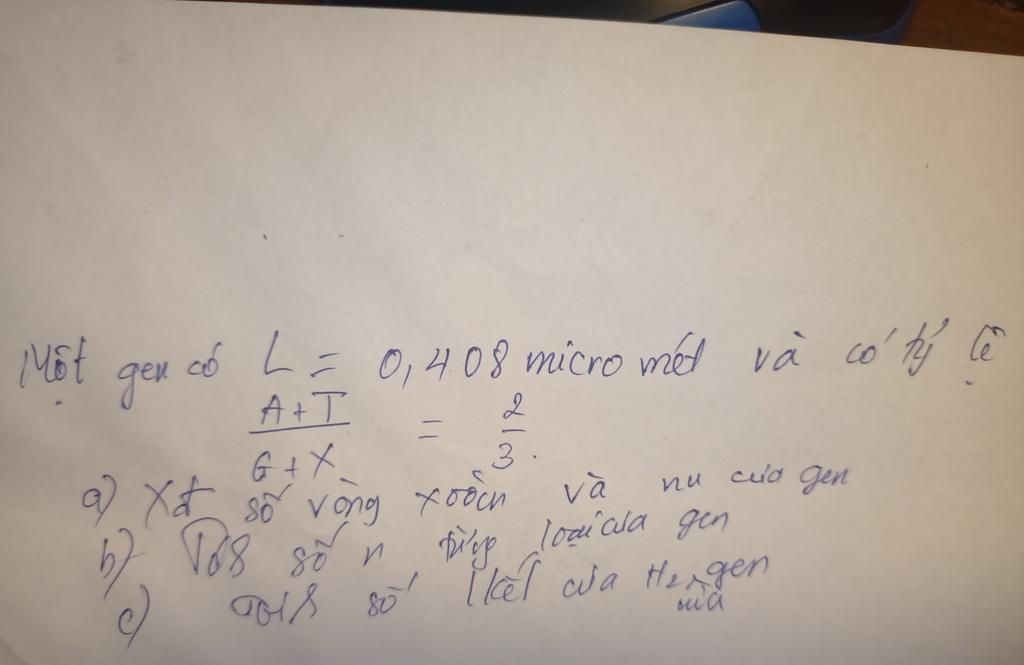 Một gen có L = 0,408 micro mét và có tỷ lệ
A + T / G + X = 2 / 3.
a) Xđ số vòng xoắn và nu của gen
b) số n từng loại của gen
c) số lkết của H2 của gen